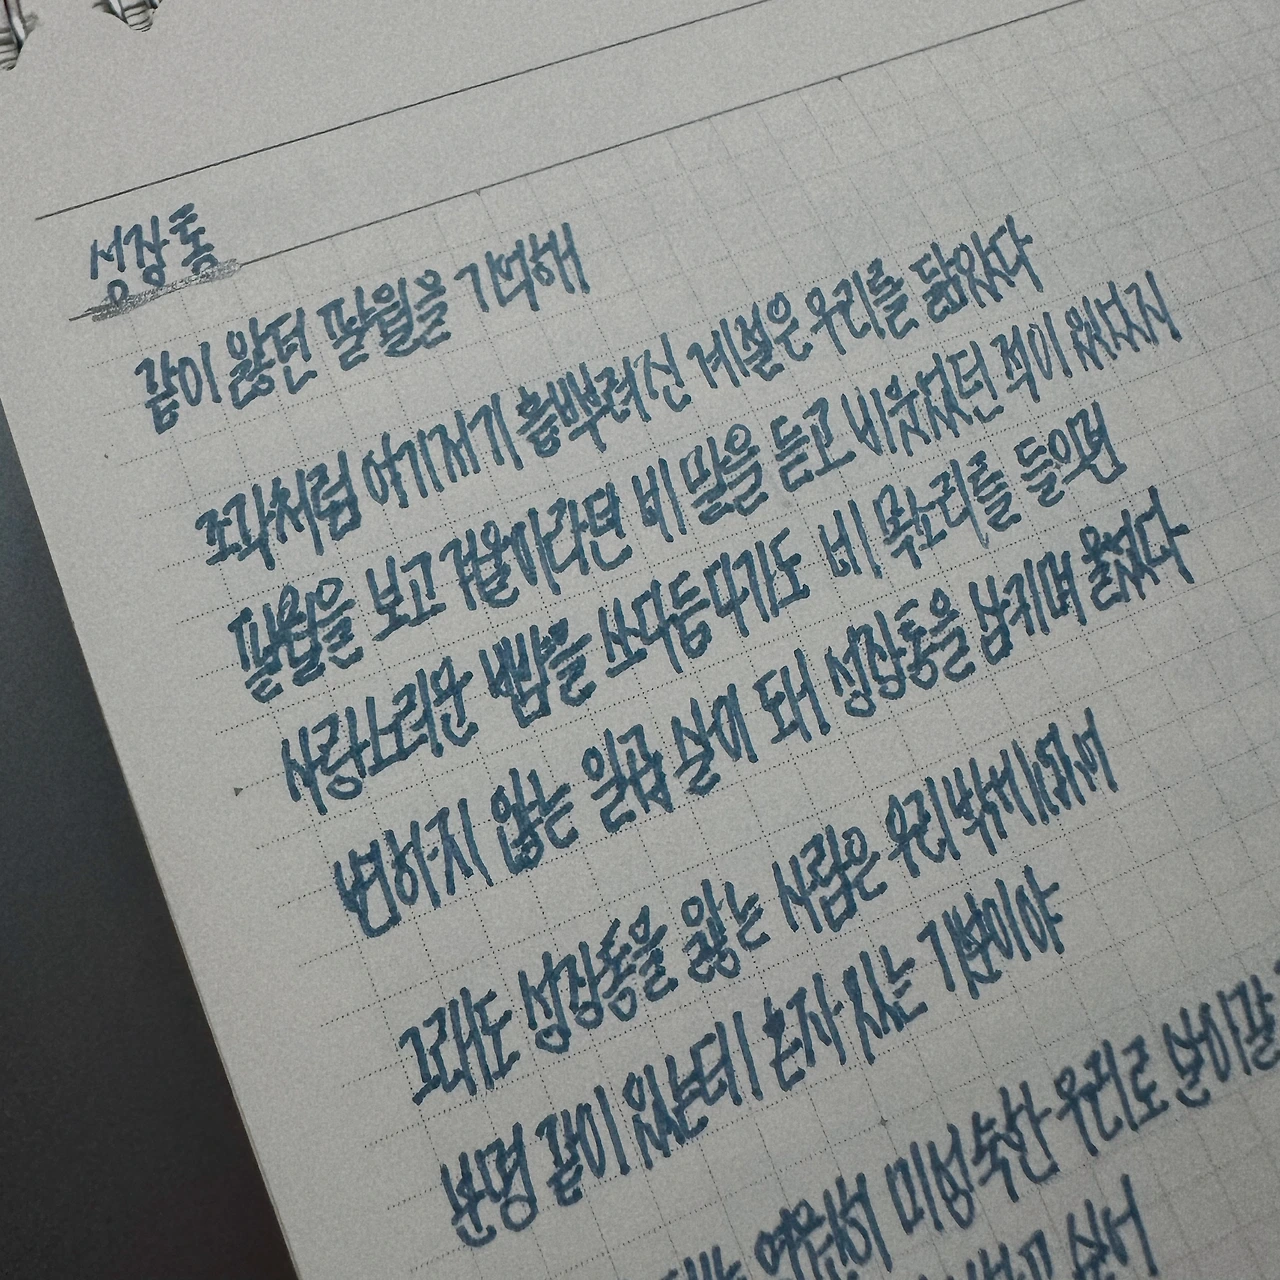 성장통
같이 앓던 팔월을 기억해
조각처럼 여기저기 흩뿌려진 계절은 우리를 닮았다
팔월을 보고 겨울이라던 네 말을 듣고 비웃었던 적이 있었지
사랑스러운 뺨을 쓰다듬다가도 네 목소리를 들으면
변하지 않는 일곱 살이 돼 성장통을 삼키며 울었다
그래도 성장통을 앓는 사람은 우리 밖에 없어
분명 같이 있는데 혼자 있는 기분이야
영원히 미성숙한 우리로 살아갈
싶어